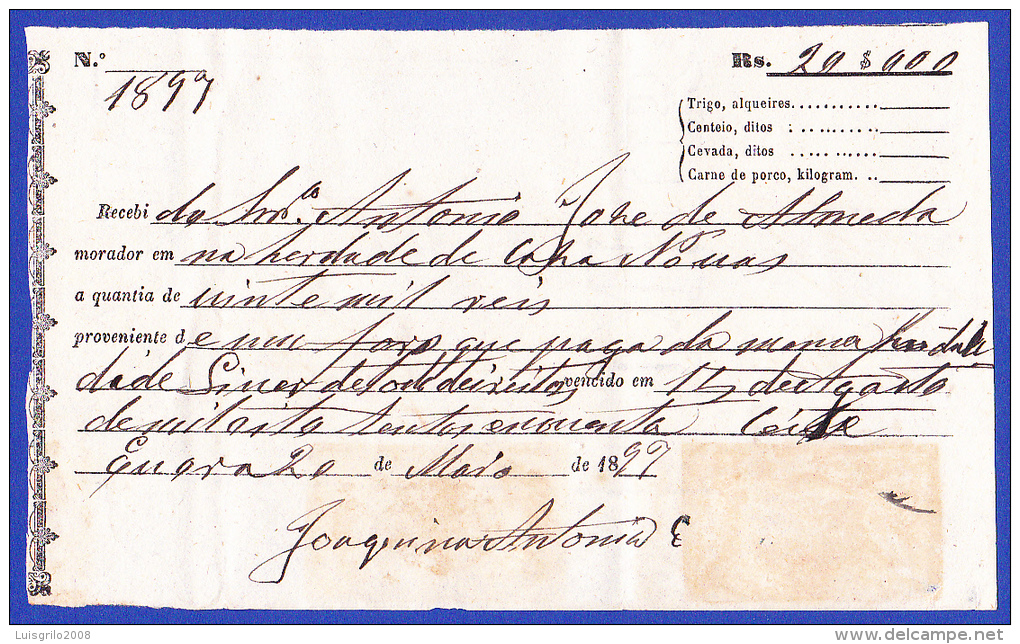 N.º
1897
Rs. 20 $ 000
Trigo, alqueires...........
Centeio, ditos : .. .......
Cevada, ditos ..... ......
Carne de porco, kilogram. ..
Recebi do Antonio Joze de Almeda
morador em na herdade de Caza Novas
a quantia de vinte mil reis
proveniente de um foro que paga da mema
dade vencido em 15 de Agosto
de mil oito sentos
Evora 20 de Maio de 1897
Joaquina Antonia
Luisgrilo2008
www.delcampe.net